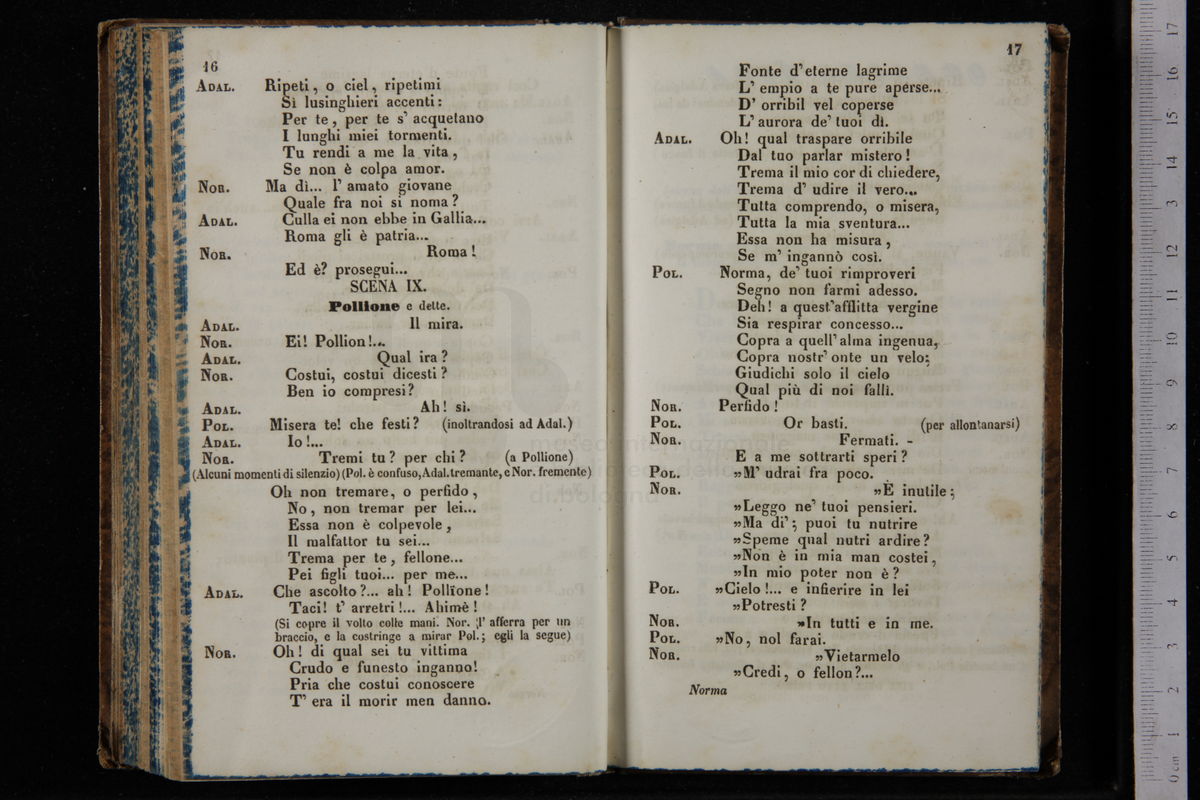 16
ADAL. Ripeti, o ciel, ripetimi
Sì lusinghieri accenti:
Per te, per te s' acquetano
I lunghi miei tormenti.
Tu rendi a me la vita,
Se non è colpa amor.
NOR. Ma dì... l' amato giovane
Quale fra noi si noma?
ADAL. Culla ei non ebbe in Gallia...
Roma gli è patria...
NOR. Roma!
Ed è? prosegui...
SCENA IX.
Pollione e dette.
ADAL. Il mira.
NOR. Ei! Pollion!...
ADAL. Qual ira?
NOR. Costui, costui dicesti?
Ben io compresi?
ADAL. Ah! sì.
POL. Misera te! che festi? (inoltrandosi ad Adal.)
ADAL. Io!...
NOR. Tremi tu? per chi? (a Pollione)
(Alcuni momenti di silenzio) (Pol. è confuso, Adal. tremante, e Nor. fremente)
Oh non tremare, o perfido,
No, non tremar per lei...
Essa non è colpevole,
Il malfattor tu sei...
Trema per te, fellone...
Pei figli tuoi... per me...
ADAL. Che ascolto?... ah! Pollione!
Taci! t' arretri!... Ahimè!
(Si copre il volto colle mani. Nor. l' afferra per un
braccio, e la costringe a mirar Pol.; egli la segue)
NOR. Oh! di qual sei tu vittima
Crudo e funesto inganno!
Pria che costui conoscere
T' era il morir men danno.
17
Fonte d' eterne lagrime
L' empio a te pure aperse...
D' orribil vel coperse
L' aurora de' tuoi dì.
ADAL. Oh! qual traspare orribile
Dal tuo parlar mistero!
Trema il mio cor di chiedere,
Trema d' udire il vero...
Tutta comprendo, o misera,
Tutta la mia sventura...
Essa non ha misura,
Se m' ingannò così.
POL. Norma, de' tuoi rimproveri
Segno non farmi adesso.
Deh! a quest'afflitta vergine
Sia respirar concesso...
Copra a quell' alma ingenua,
Copra nostr' onte un velo;
Giudichi solo il cielo
Qual più di noi fallì.
NOR. Perfido!
POL. Or basti. (per allontanarsi)
NOR. Fermati. -
E a me sottrarti speri?
POL. »M' udrai fra poco.
NOR. »È inutile;
»Leggo ne' tuoi pensieri.
»Ma di'; puoi tu nutrire
»Speme qual nutri ardire?
»Non è in mia man costei,
»In mio poter non è?
POL. »Cielo!... e infierire in lei
»Potresti?
NOR. »In tutti e in me.
POL. »No, nol farai.
NOR. »Vietarmelo
»Credi, o fellon?...
Norma